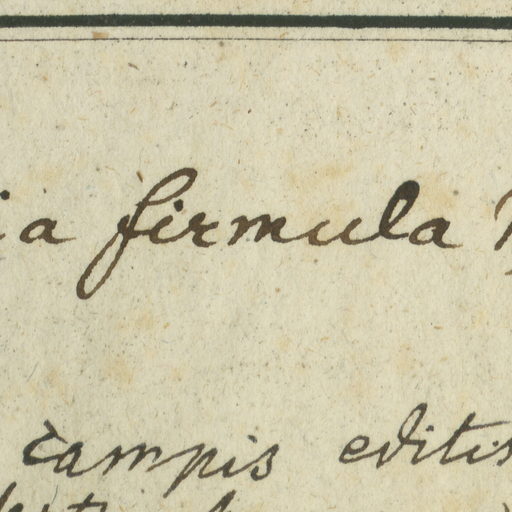 ia firmula
campis editis